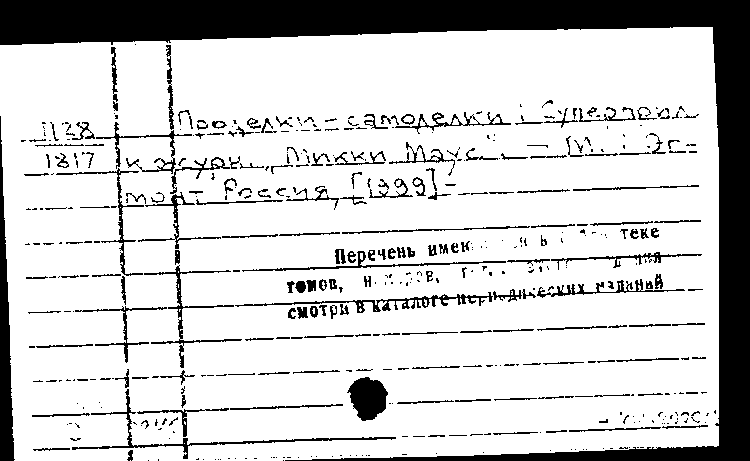 П38
1817
Проделки-самоделки : Суперприл.
к журн. „Микки Маус". — М. : Эг-
монт Россия, [1999]-
Перечень имеющихся в библиотеке
томов, номеров,
смотри в каталоге периодических изданий